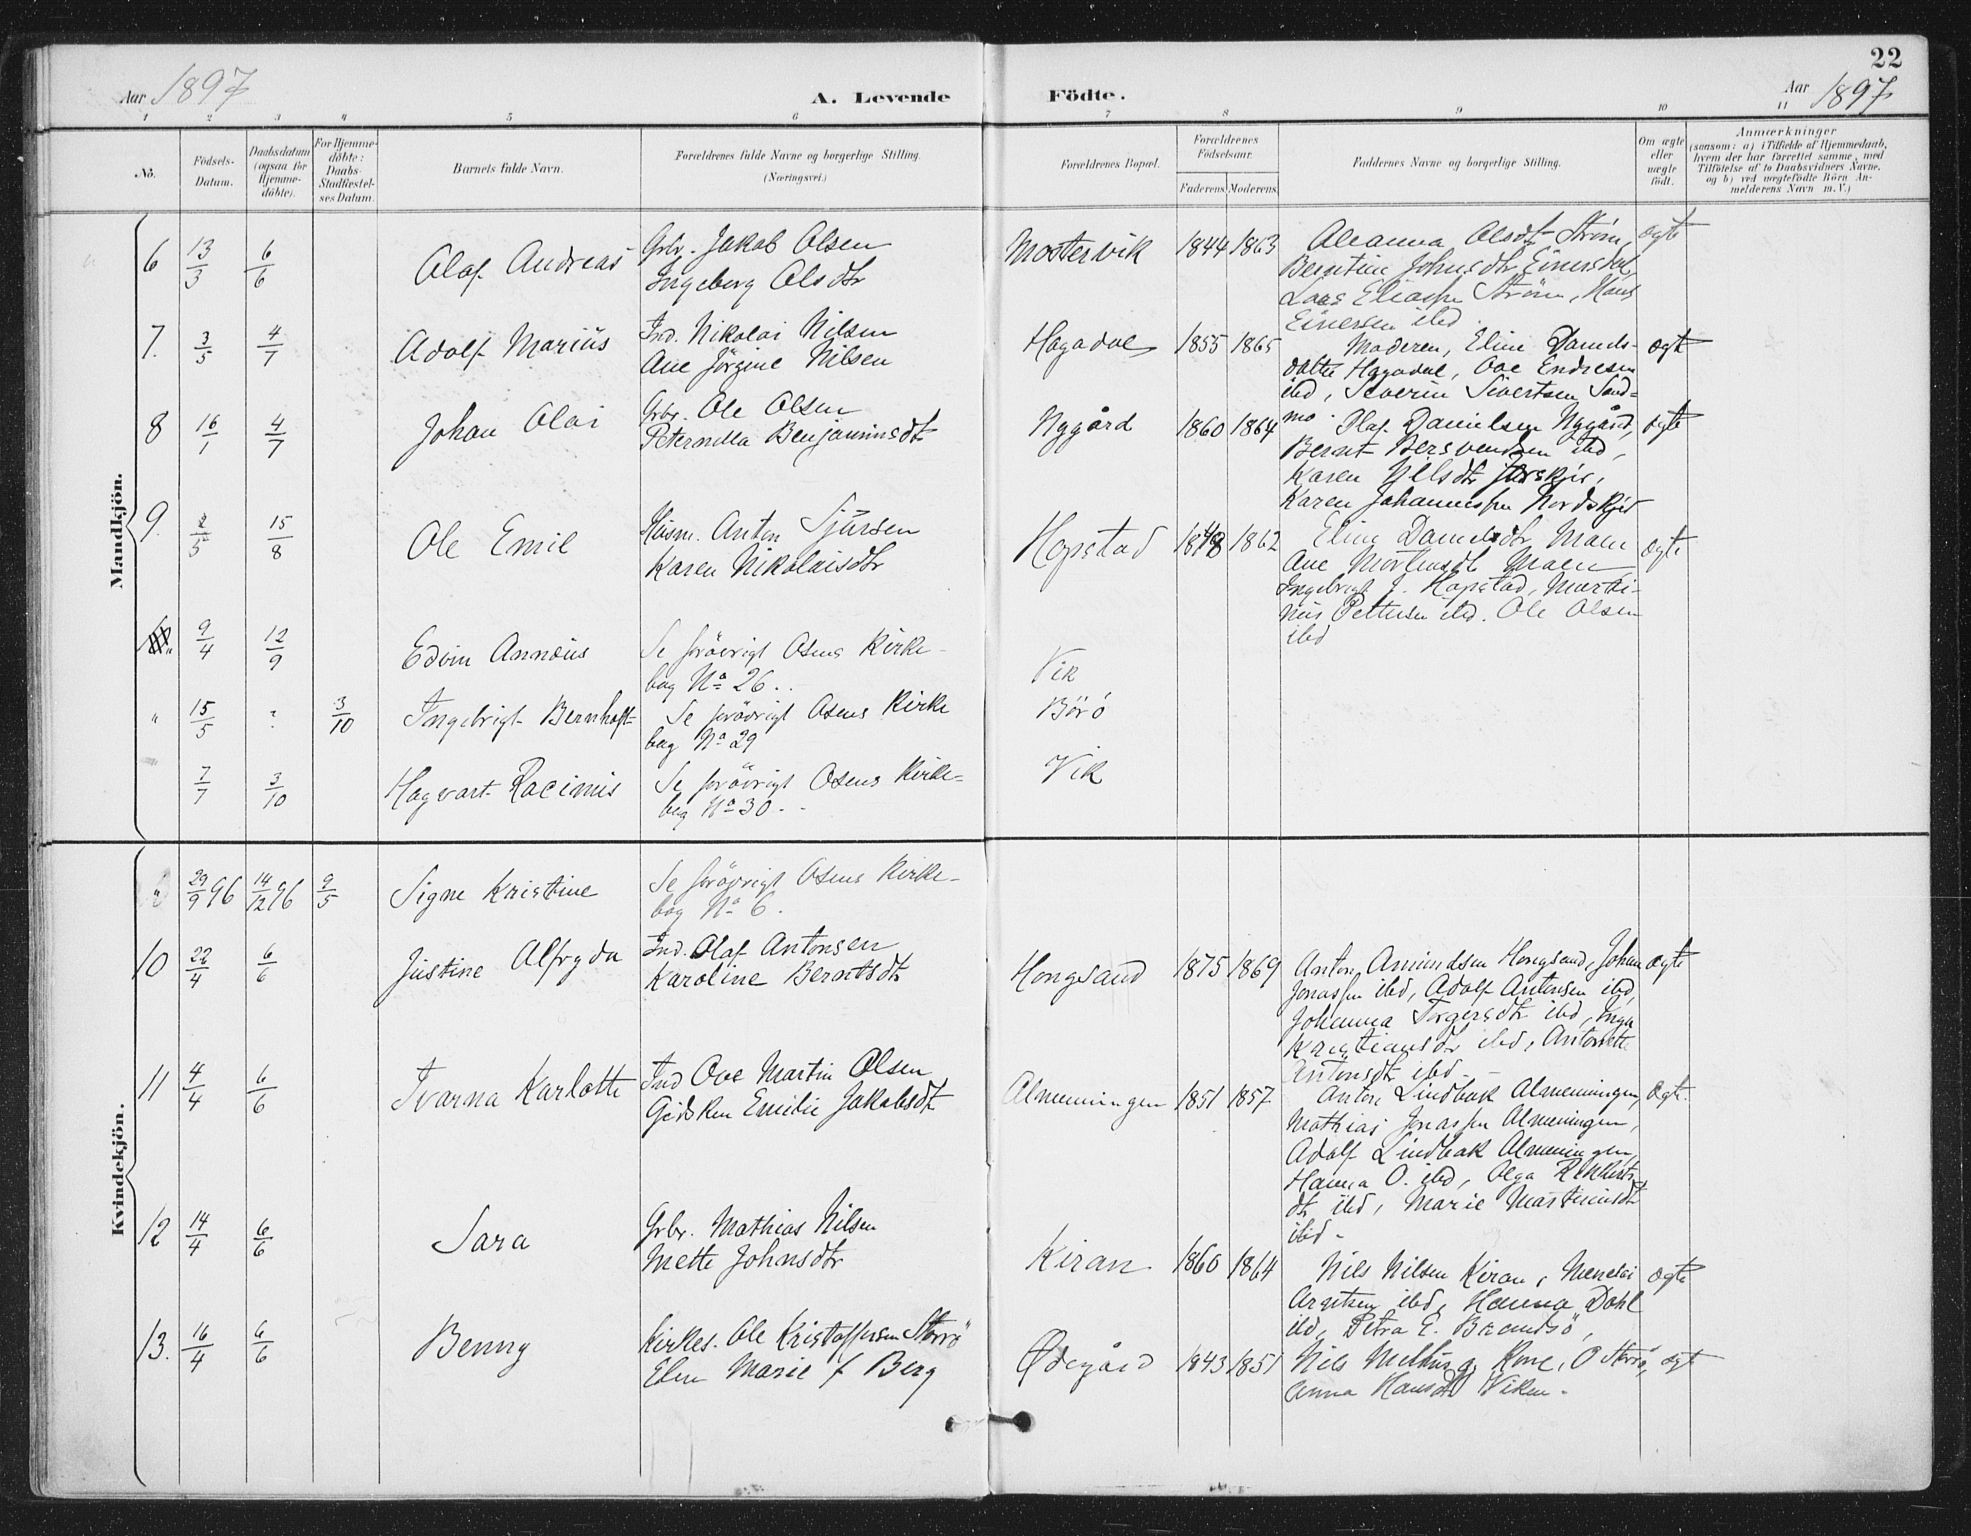 22
Aar 1897
A. Levende Födte.
Aar 1897
1 2 3 4 5 6 7 8 9 10 11
No.
Födsels-Datum.
Daabsdatum (ogsaa for Hjemme-döbte).
For Hjemme-döbte: Daabs-Stadfæstel-ses Datum.
Barnets fulde Navn.
Forældrenes fulde Navne og borgerlige Stilling. (Næringsvei.)
Forældrenes Bopæl.
Forældrenes Födselsaar.
Faderens. Moderens.
Faddernes Navne og borgerlige Stilling.
Om ægte eller uægte födt.
Anmærkninger
(saasom: a) i Tilfælde af Hjemmedaab,
hvem der har forrettet samme, med
Tilföielse af to Daabsvidners Navne,
og b) ved uægtefödte Börn An-
melderens Navn m. V.)
Mandkjön.
6 13/3 6/6 Olaf Andreas Grbr. Jakob Olsen Mostervik 1844 1863 Aleanna Olsdtr Strøm, ægte
Ingeberg Olsdtr Berntine Johnsdtr
Lars Eliassen Strøm, Hans
Einersen ibd.
7. 3/5 4/7 Adolf Marius Ind. Nikolai Nilsen Hagadal 1855 1865 Moderen, Eline Daniels- ægte
Ane Jörgine Nilsen datter Hagadal, Ove Endresen
ibd, Severin Sivertsen Sand-
mo.
8 16/1 4/7 Johan Olai Grbr. Ole Olsen Nygård 1860 1864 Olaf Danielsen Nygård, ægte
Peternilla Benjaminsdtr Bernt Bersvendsen ibd,
Karen Nilsdtr
Karen Johannessen Nordskjer
9. 2/5 15/8 Ole Emil Husm. Anton Sjursen Hopstad 1848 1862 Eline Danielsdtr Moen ægte
Karen Nikolaisdtr Ane Mortensdt Moen
Ingebrigt J. Hopstad, Marti-
nus Pettersen ibd. Ole Olsen
ibd
" 9/4 12/9 Edvin Annæus Se forövrigt Osens Kirke- Vik
bog No 26.
" 15/5 ? 3/10 Ingebrigt Bernhoft Se forövrigt Osens Kirke Börö
bog No 29
7/7 3/10 Hagvart Racinius Se forövrigt Osens Kirke- Vik
bog No 30.
Kvindekjön.
" 29/9 96 14/12 96 9/5 Signe Kristine Se forövrigt Osens Kirke-
bog No 6.
10 22/4 6/6 Justine Alfryda Ind. Olaf Antonsen Hongsand 1875 1869 Anton Amundsen Hongsand, Johan ægte
Karoline Berntsdtr Jonassen ibd, Adolf Antonsen ibd,
Johanna Torgersdtr ibd, Inga
Kristiansdtr ibd, Antonette
Antonsdtr ibd.
11 4/4 6/6 Ivarna Karlotte Ind Ove Martin Olsen Almenningen 1851 1857 Anton Lindbak Almenningen, ægte.
Gidsken Emilie Jakobsdt Mathias Jonassen Almeningen,
Adolf Lindbak Almeningen,
Hanna O. ibd, Olga
dtr ibd, Marie Martinusdt
ibid.
12 14/4 6/6 Sara Grbr. Mathias Nilsen Kiran 1860 1864 Nils Nilsen Kiran, Menelai ægte
Mette Johnsdtr Arntsen ibd, Hanna Dahl
ibd, Petra E. Brandsö,
13. 16/4 6/6 Benny Kirkes. Ole Kristoffersen Storrö Ødegård 1843 1851 Nils Melhus og Kone, O Storrö, ægt
Elen Marie f Berg Anna Hansdt Viken.